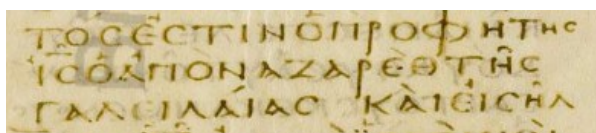 ΤΟCΕCΤΙΝΟΠΡΟΦΗΤΗC
ΙC ΟΑΠΟΝΑΖΑΡΕΘΤΗC
ΓΑΛΕΙΛΑΙΑC ΚΑΙΕΙCΗΛ